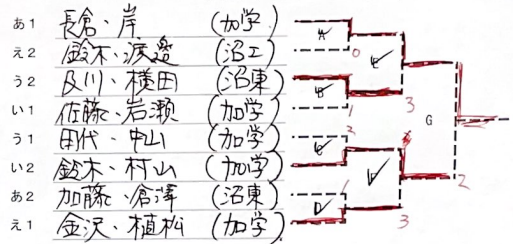 あ1 長倉・岸 (加学)
え2 鈴木・渡邉 (沼工)
う2 及川・横田 (沼東)
い1 佐藤・岩瀬 (加学)
う1 田代・中山 (加学)
い2 鈴木・村山 (加学)
あ2 加藤・倉澤 (沼東)
え1 金沢・植松 (加学)
A
0
E
B
1
3
G
2
C
F
1
2
D
3